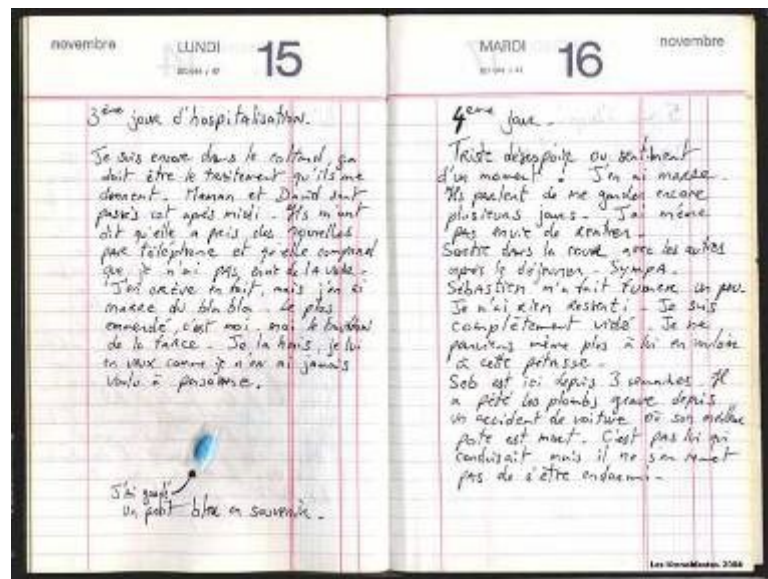 novembre
LUNDI
15
3ème jour d'hospitalisation.
Je suis encore dans le coltard, ça
doit être le traitement qu'ils me
donnent. Maman et David sont
passés cet après midi. Ils m'ont
dit qu'elle a pris des nouvelles
par téléphone et qu'elle comprend
que je n'ai pas envie de LA voir.
J'en arrive en tout, mais j'en ai
marre du bla bla. Le plus
emmerdé, c'est moi, moi le
de la farce. Je la hais, je lui
en veux comme je n'en ai jamais
voulu à personne.
J'ai gardé
un petit bleu en souvenir.
MARDI
16
novembre
4ème jour.
Triste désespoir ou sentiment
d'un moment ! J'en ai marre.
Ils parlent de me garder encore
plusieurs jours. J'ai même
pas envie de rentrer.
Sortie dans la cour avec les autres
après le déjeuner. SYMPA.
Sébastien m'a fait fumer un peu.
Je n'ai rien ressenti. Je suis
complètement vidé. Je ne
parviens même plus à lui en vouloir
à cette pétasse.
Seb est ici depuis 3 semaines. Il
a pété les plombs grave depuis
un accident de voiture où son meilleur
pote est mort. C'est pas lui qui
conduisait mais il ne s'en remet
pas de s'être endormi.
2004